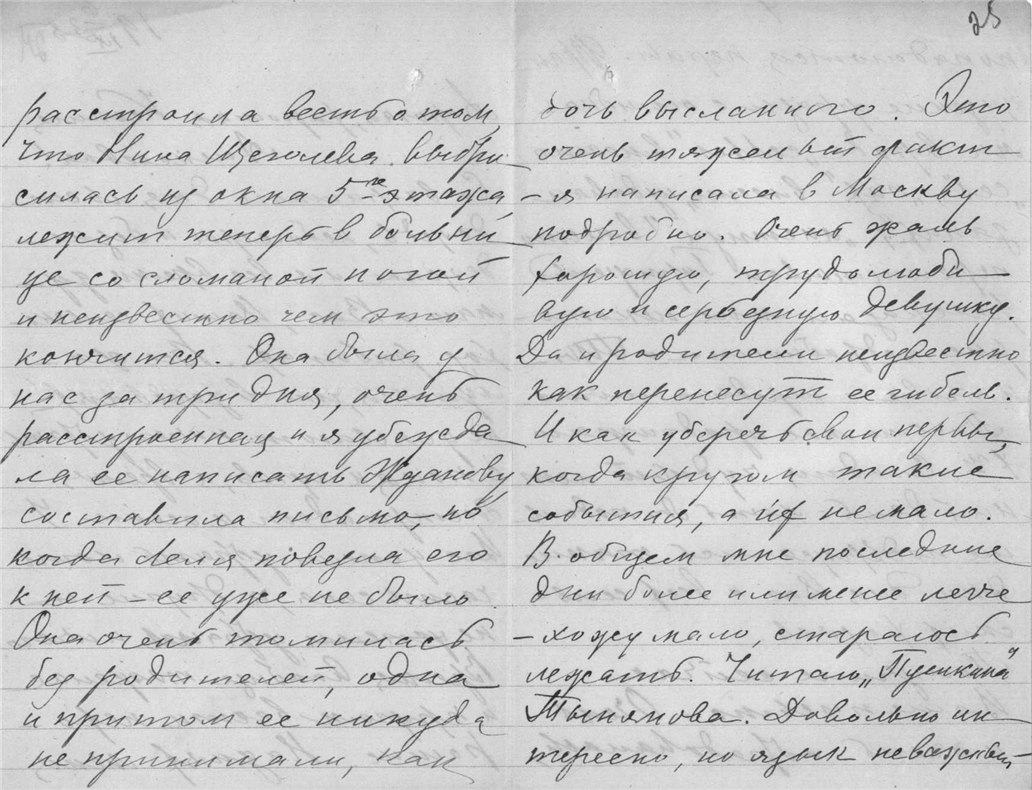 25
расстроила весть о том,
что Нина Щеголева выбро
силась из окна 5го этажа,
лежит теперь в больни
це со сломаной ногой
и неизвестно чем это
кончится. Она была у
нас за три дня, очень
расстроенная и я убежда
ла ее написать Жданову,
составила письмо, но
когда Леля повезла его
к ней – ее уже не было.
Она очень томилась
без родителей, одна
и притом ее никуда
не принимали, как
дочь высланного. Это
очень тяжелый факт
– я написала в Москву
подробно. Очень жаль
хорошую, трудолюби
вую и серьезную девушку.
Да и родители неизвестно
как перенесут ее гибель.
И как уберечь свои нервы,
когда кругом такие
события, а их немало.
В общем мне последние
дни более или менее легче
– хожу мало, стараюсь
лежать. Читаю „Пушкина"
Тынянова. Довольно ин
тересно, но язык неважный